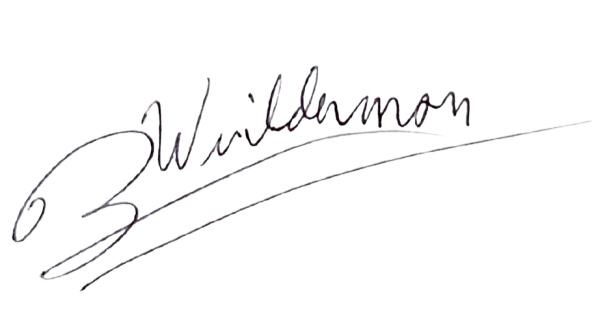 B Wilderman